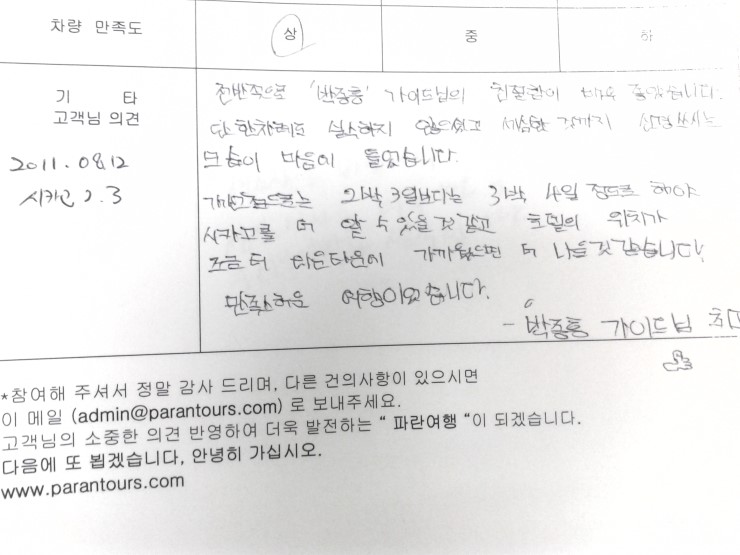 차량 만족도 상 중 하
기 타
고객님 의견
2011.08.12
시카고 2.3
전반적으로 '박종흥' 가이드님의 친절함이 매우 좋았습니다.
단 한차례도 실수하지 않으셨고 세심한 것까지 신경쓰시는
모습이 마음에 들었습니다.
개인적으로는 2박 3일보다는 3박 4일 정도로 해야
시카고를 더 알 수 있을것 같고 호텔의 위치가
조금 더 다운타운에 가까웠으면 더 나을것 같습니다.
만족스러운 여행이었습니다.
- 박종흥 가이드님 최고
*참여해 주셔서 정말 감사 드리며, 다른 건의사항이 있으시면
이 메일 (admin@parantours.com) 로 보내주세요.
고객님의 소중한 의견 반영하여 더욱 발전하는 “ 파란여행 “이 되겠습니다.
다음에 또 뵙겠습니다, 안녕히 가십시오.
www.parantours.com